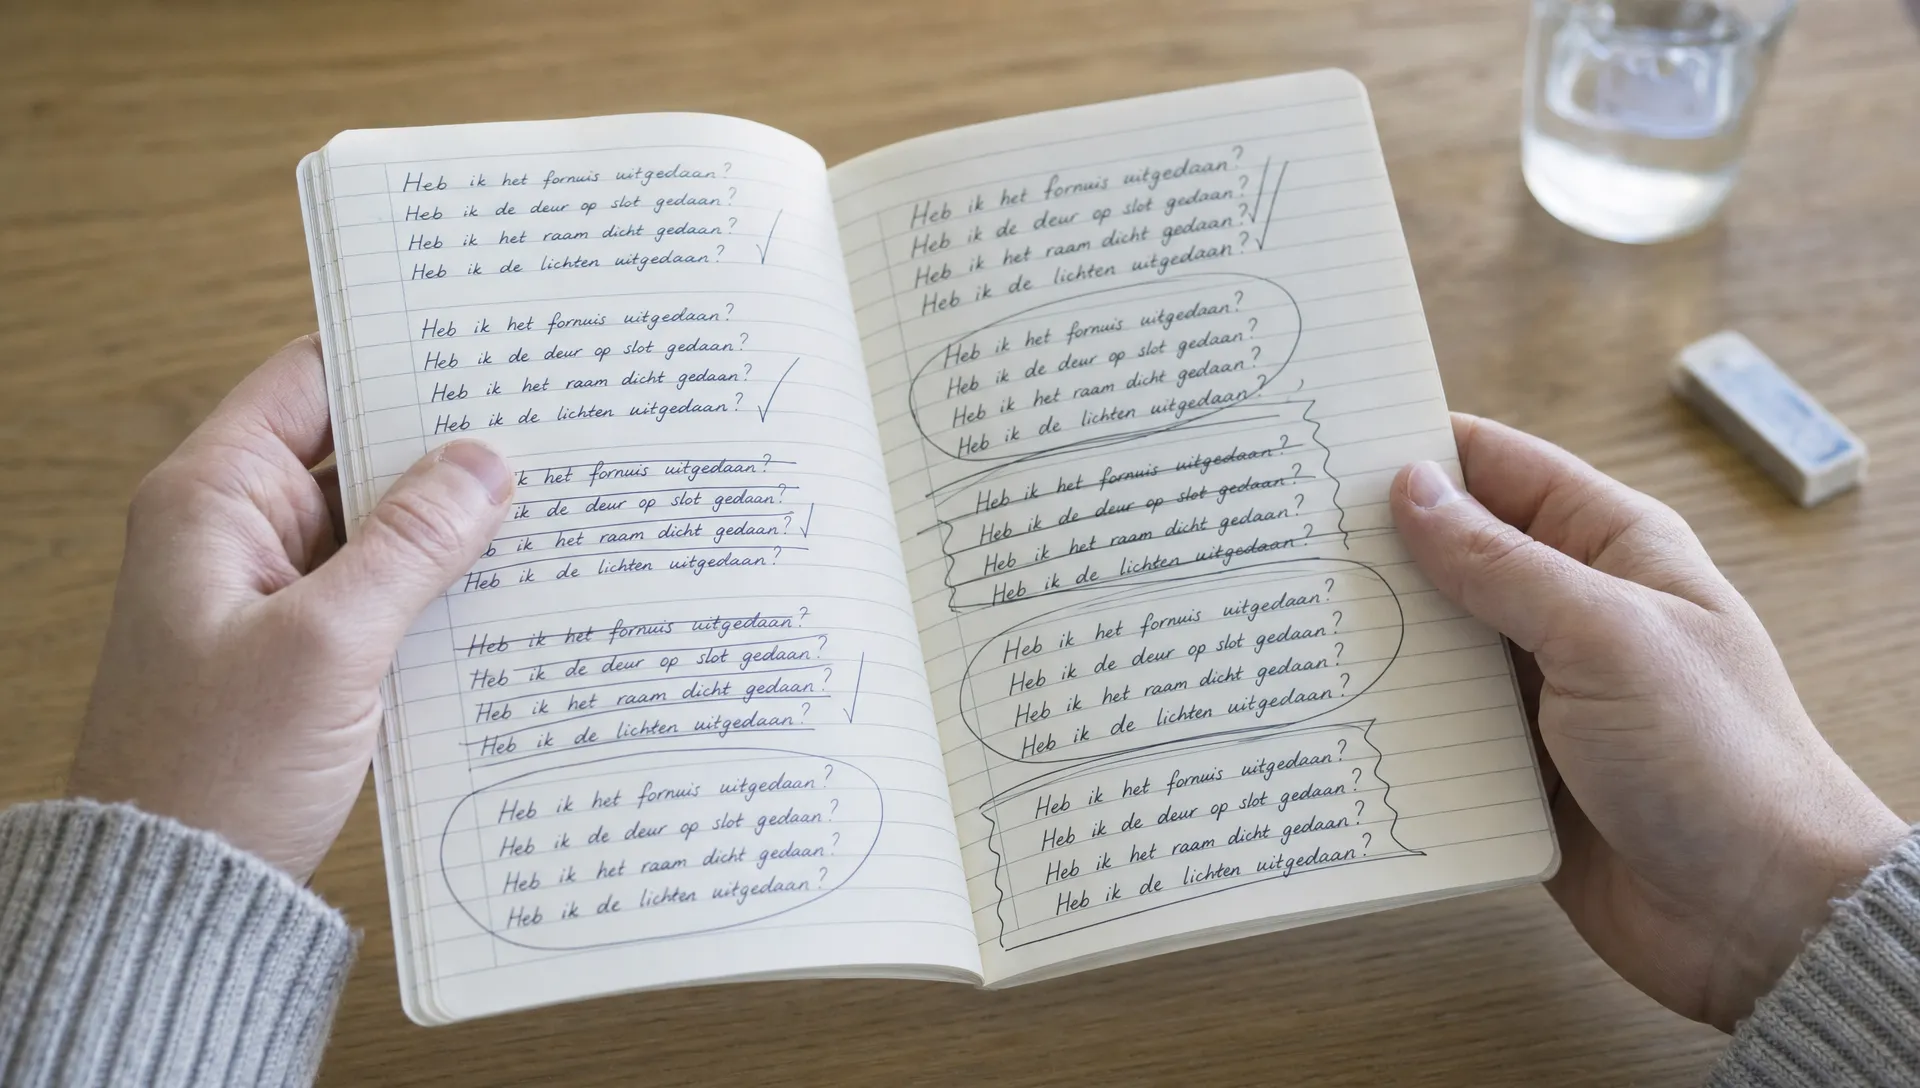 Heb ik het fornuis uitgedaan?
Heb ik de deur op slot gedaan?
Heb ik het raam dicht gedaan?
Heb ik de lichten uitgedaan?
Heb ik het fornuis uitgedaan?
Heb ik de deur op slot gedaan?
Heb ik het raam dicht gedaan?
Heb ik de lichten uitgedaan?
het fornuis uitgedaan?
ik de deur op slot gedaan?
ik het raam dicht gedaan?
Heb ik de lichten uitgedaan?
Heb ik het fornuis uitgedaan?
Heb ik de deur op slot gedaan?
Heb ik het raam dicht gedaan?
Heb ik de lichten uitgedaan?
Heb ik het fornuis uitgedaan?
Heb ik de deur op slot gedaan?
Heb ik het raam dicht gedaan?
Heb ik de lichten uitgedaan?
Heb ik het fornuis uitgedaan?
Heb ik de deur op slot gedaan?
Heb ik het raam dicht gedaan?
Heb ik de lichten uitgedaan?
Heb ik het fornuis uitgedaan?
Heb ik de deur op slot gedaan?
Heb ik het raam dicht gedaan?
Heb ik de lichten uitgedaan?
Heb ik het fornuis uitgedaan?
Heb ik de deur op slot gedaan?
Heb ik het raam dicht gedaan?
Heb ik de lichten uitgedaan?
Heb ik het fornuis uitgedaan?
Heb ik de deur op slot gedaan?
Heb ik het raam dicht gedaan?
Heb ik de lichten uitgedaan?
Heb ik het fornuis uitgedaan?
Heb ik de deur op slot gedaan?
Heb ik het raam dicht gedaan?
Heb ik de lichten uitgedaan?